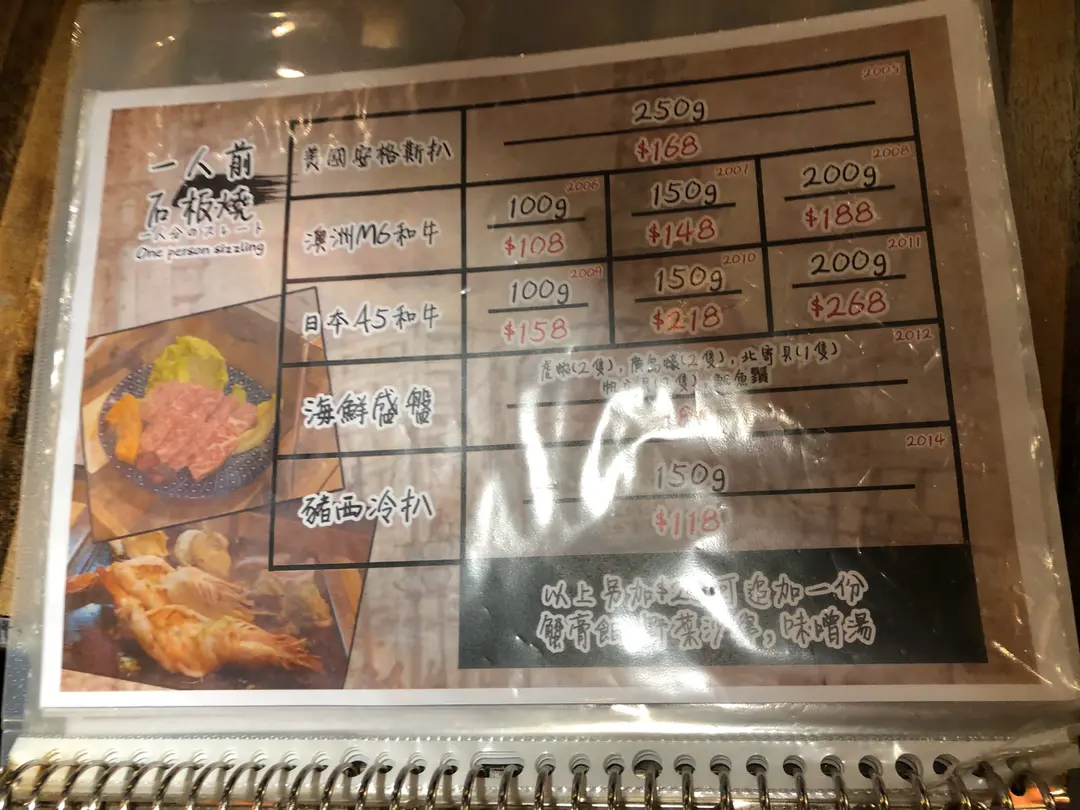 一人前
石板燒
二人分のスレート
One person sizzling
美國安格斯扒
2005
250g
$168
澳洲M6和牛
2006
100g
$108
2007
150g
$148
2008
200g
$188
日本A5和牛
2009
100g
$158
2010
150g
$218
2011
200g
$268
海鮮盛盤
2012
虎蝦(2隻), 廣島蠔(2隻), 北寄貝(1隻)
豬西冷扒
2014
150g
$118
以上另加 可追加一份
蟹膏 味噌湯